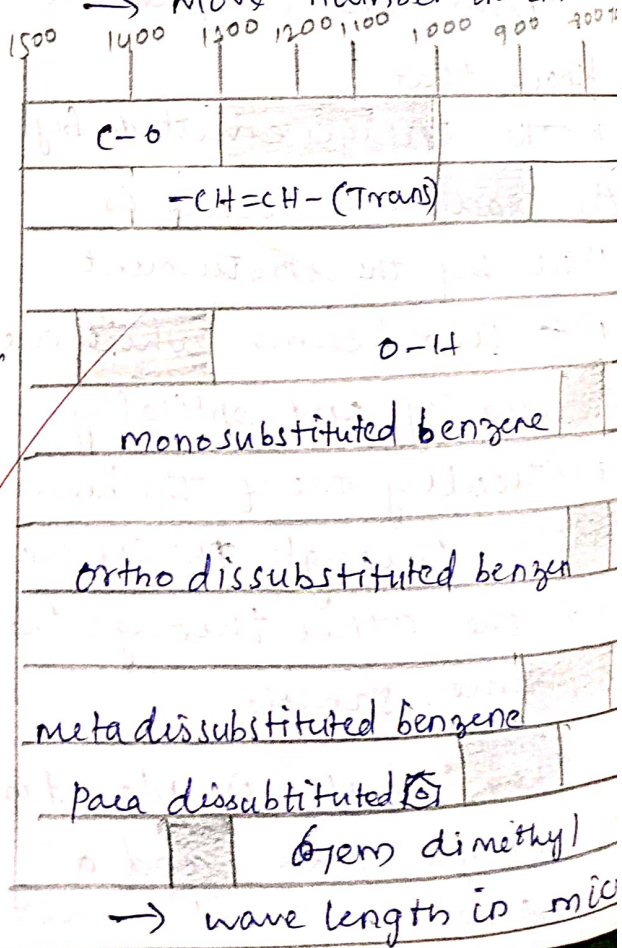 → Move number
1500 1400 1300 1200 1100 1000 900
C-O
-CH=CH- (Trans)
O-H
monosubstituted benzene
ortho dissubstituted benzen
meta dissubstituted benzene
Para dissubtituted
Gem dimethyl
→ wave length in mic